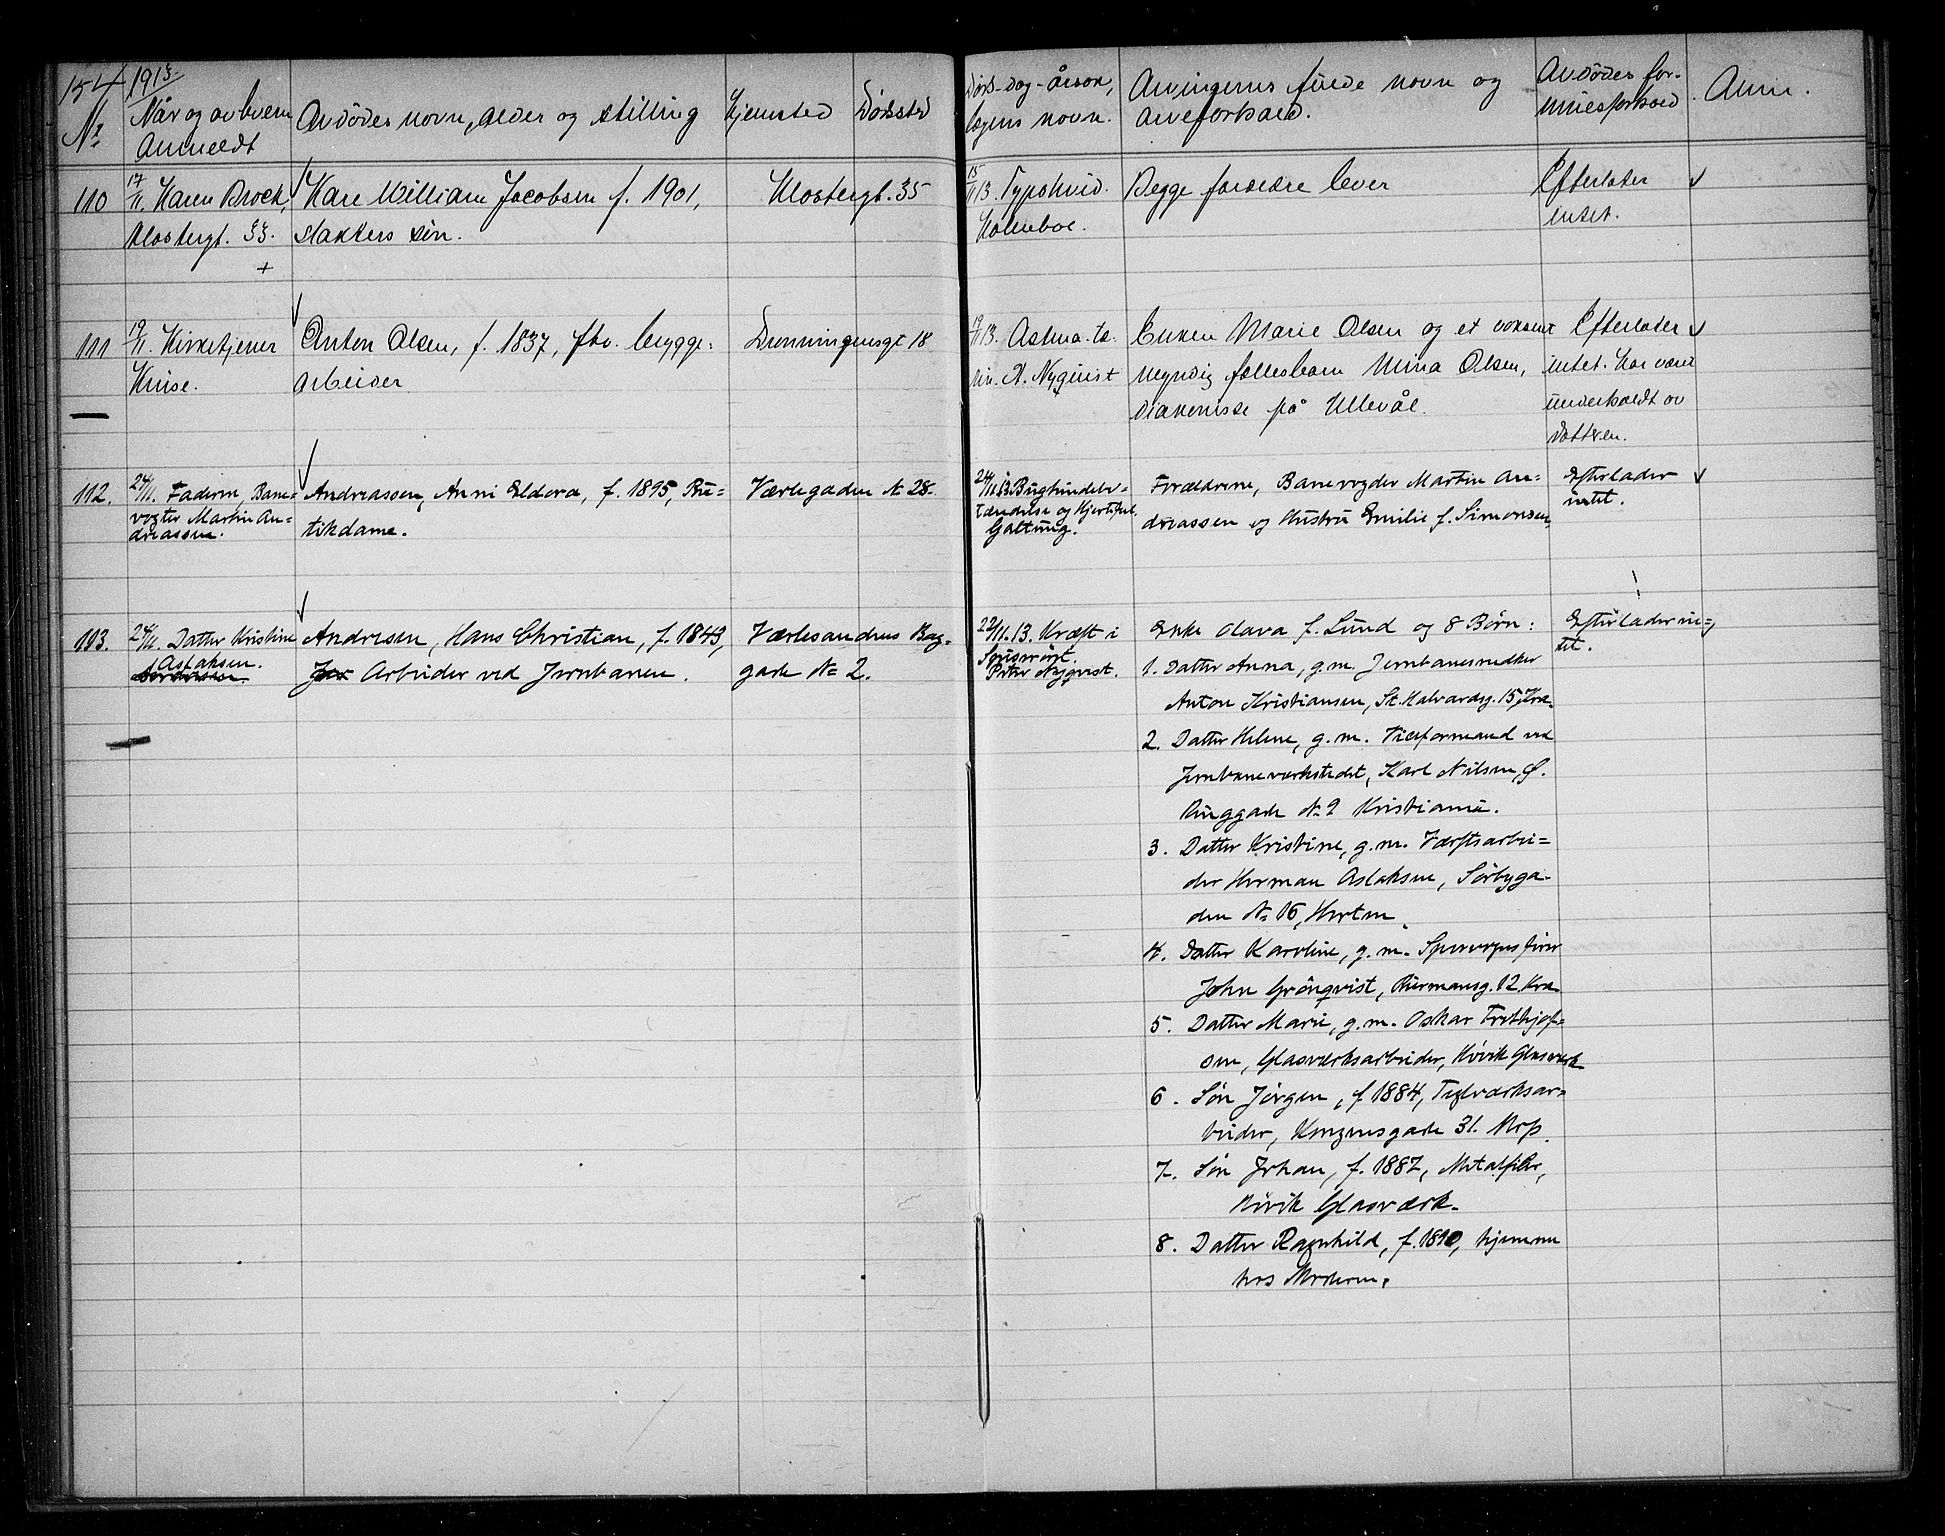 154 1913.
No
Når og av hvem
anmeldt
Avdødes navn, alder og stilling
Hjemsted
Dødssted
Døds-dag-årsak,
lægens navn.
Arvingernes fulde navn og
arveforhold.
Avdødes for-
muesforhold
Anm.
110
17/11. Karen Brock,
Klostergt. 33.
Kåre William Jacobsen f. 1901,
slakters søn.
Klostergt. 35
15/11 13. Typshvid.
Holmboe.
Begge forældre lever
Efterlater
intet.
111
19/11. Kirketjener
Kruse.
Anton Olsen, f. 1837, fhv. brygge-
arbeider
Dronningensgt 18
19/11 13. Astma.
A. Nyquist
Enken Marie Olsen og et voksent
myndig fællesbarn Mina Olsen,
diakonisse på Ullevål.
Efterlater
intet. Har været
underholdt av
datteren.
112.
24/11. Faderen, Bane-
vogter Martin An-
dreassen.
Andreassen, Anni Eldora, f. 1895, Bu-
tikdame.
Værlegaden № 28.
24/11 13. Bughindebe-
tændelse og Hjertefeil.
Galtung.
Forældrene, Banevogter Martin An-
dreassen og Hustru Emilie f. Simonsen,
Efterlader
intet.
113.
24/11. Datter Kristine
Aslaksen.
Andresen, Hans Christian, f. 1843,
Jer Arbeider ved Jernbanen.
Værlesandens Bag-
gade № 2.
22/11.13. Kræft i
Spiserøret.
Peter Nyqvist.
Enke Olava f. Lund og 8 Børn:
1. Datter Anna, g.m. Jernbanesnedker
Anton Kristiansen, St. Halvardsg. 15, Kra.
2. Datter Helene, g.m. Viceformand ved
Jernbaneverkstedet, Karl Nilsen, Ø.
Ringgade № 2 Kristiania.
3. Datter Kristine, g.m. Værftsarbei-
der Herman Aslaksen, Sørbyga-
den № 16, Horten.
4. Datter Karoline, g.m. Sporvognsfører
John Grönqvist, 12 Kra
5. Datter Marie, g.m. Oskar Fredhjof-
sen, Glasværksarbeider, Høvik Glasværk
6. Søn Jørgen, f 1884, Teglværksar-
beider, Kongensgade 31. Mos.
7. Søn Johan, f. 1887, Metalfiler,
Høvik Glasværk.
8. Datter Ragnhild, f. 1890, hjemme
hos Moderen.
Efterlader in-
tet.